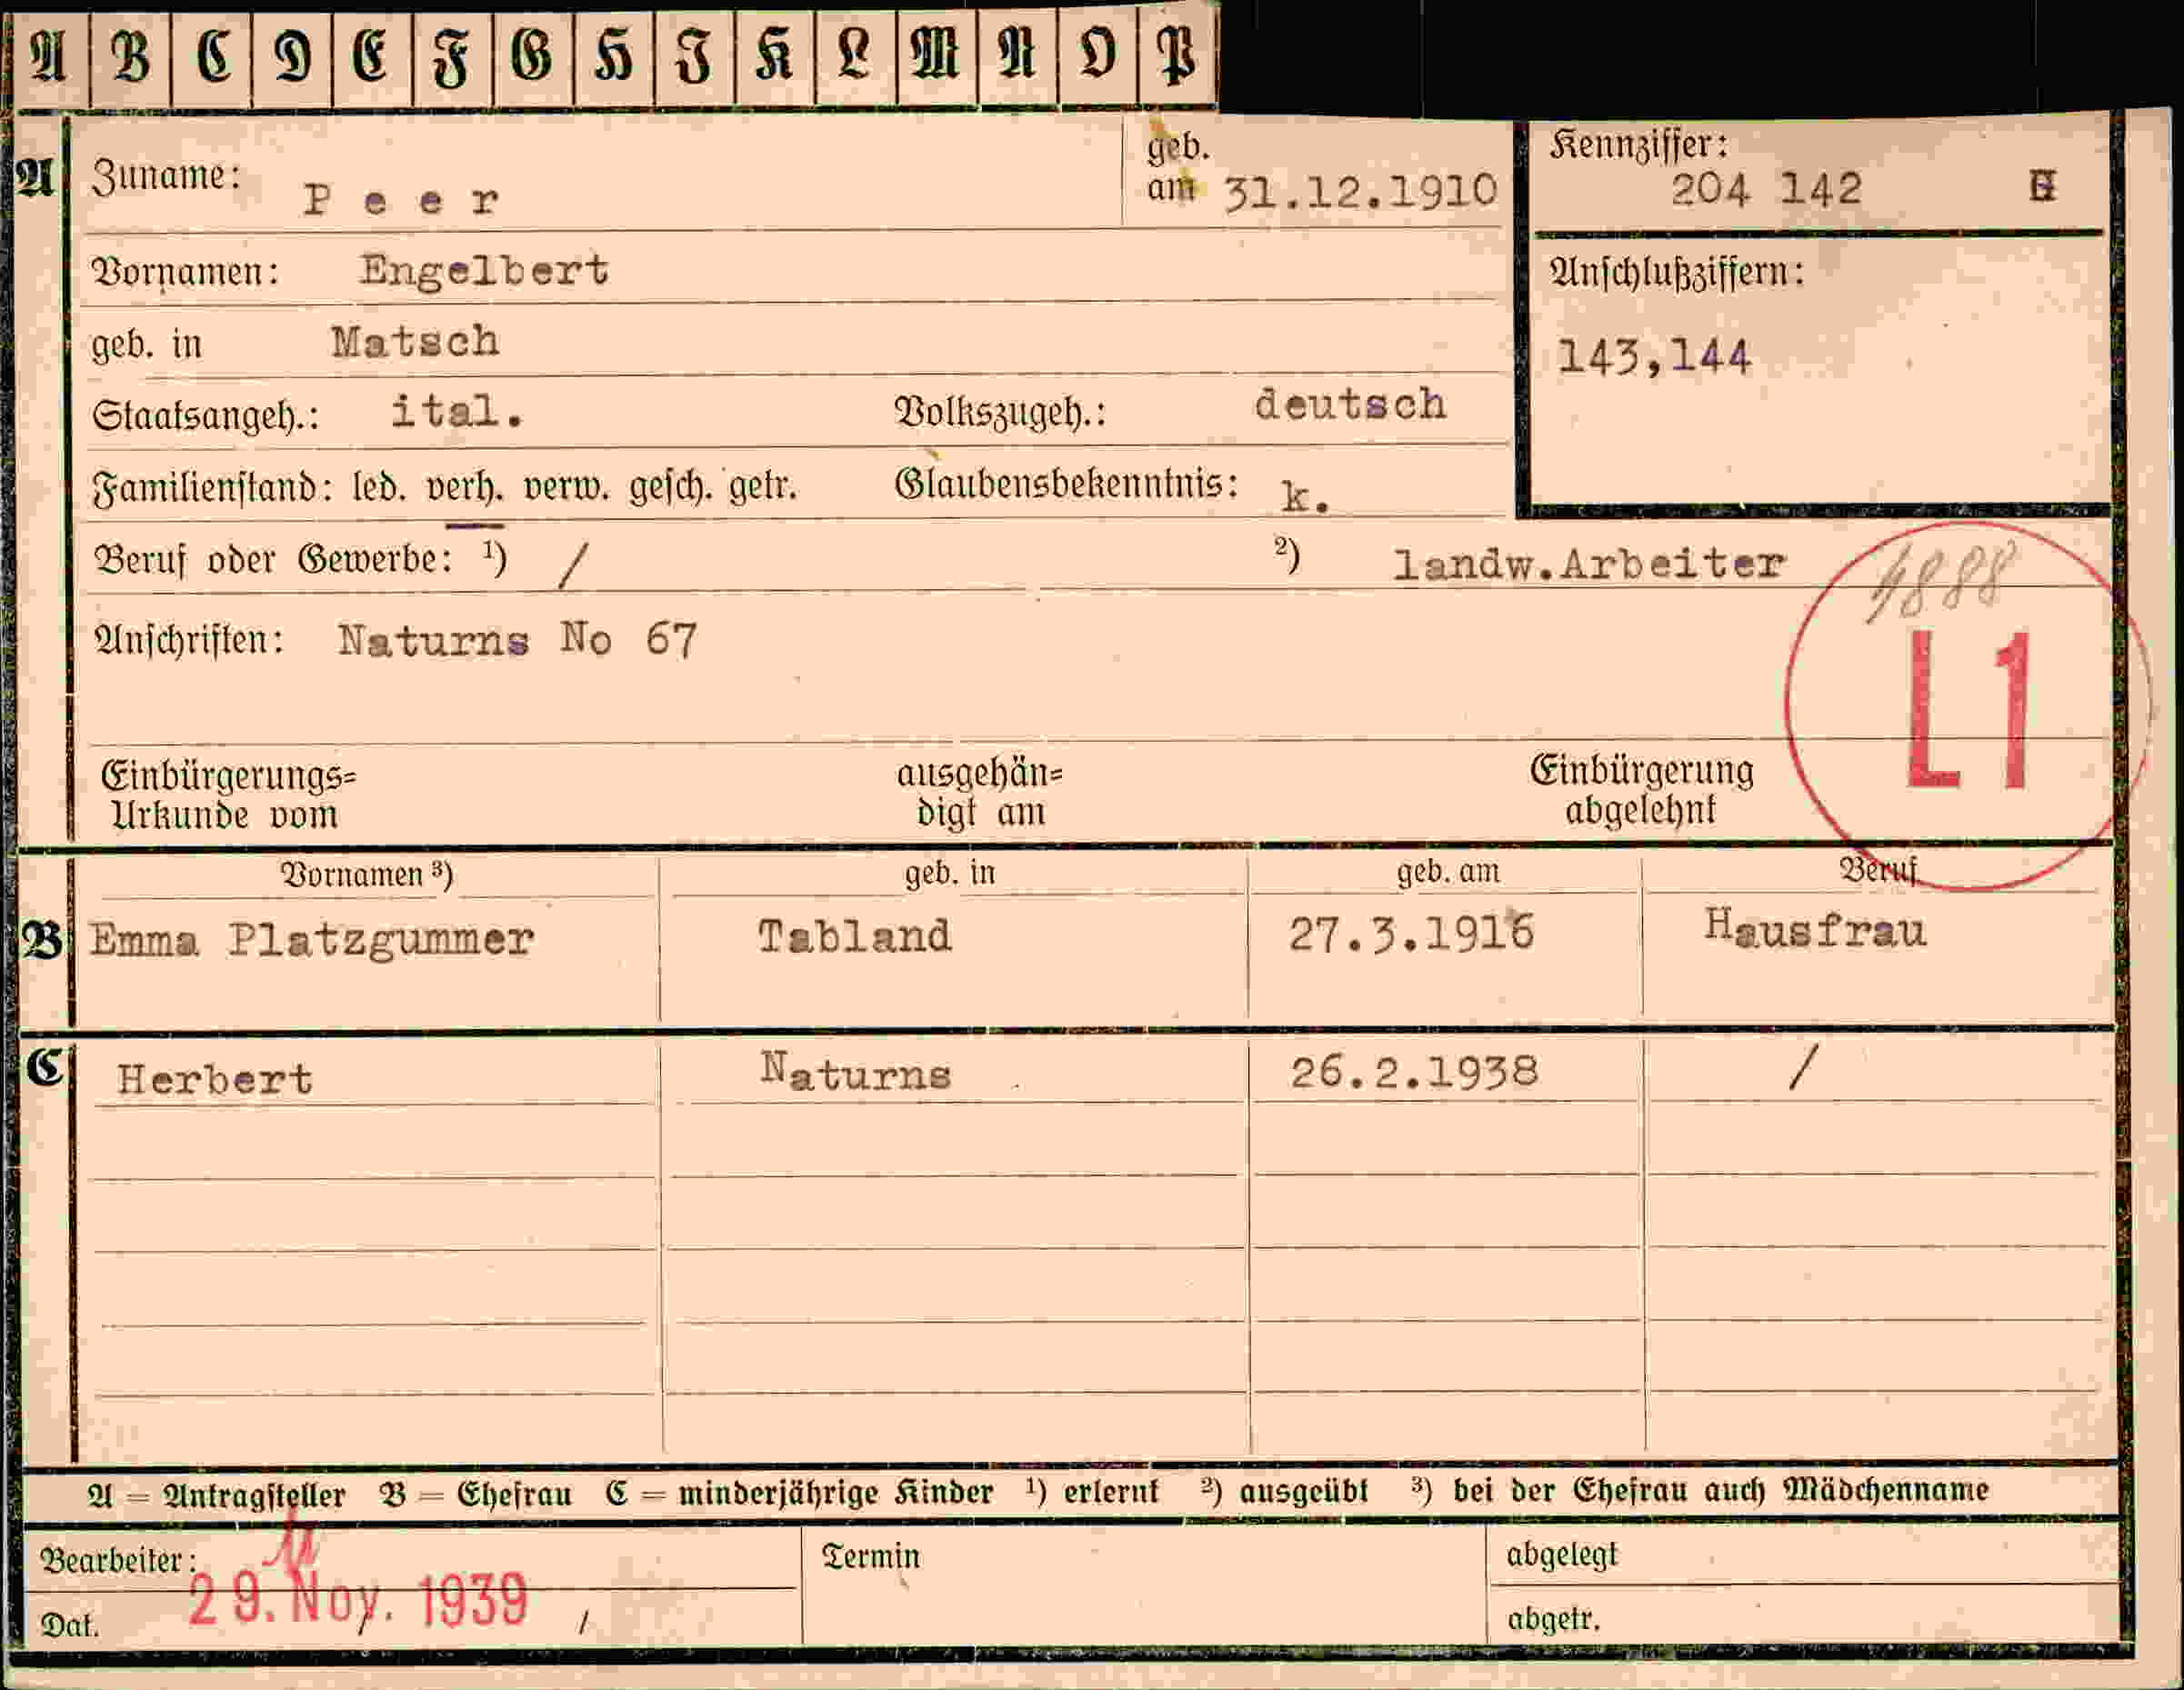 A B C D E F G H I K L M N O P
A Zuname: Peer geb. am 31.12.1910 Kennziffer: 204 142
Vornamen: Engelbert Anschlußziffern:
geb. in Matsch 143,144
Staatsangeh.: ital. Volkszugeh.: deutsch
Familienstand: led. verh. verw. gesch. getr. Glaubensbekenntnis: k.
Beruf oder Gewerbe: 1) / 2) landw.Arbeiter
Anschriften: Naturns No 67
L1
Einbürgerungs= ausgehän= Einbürgerung
Urkunde vom digt am abgelehnt
Vornamen 3) geb. in geb. am Beruf
B Emma Platzgummer Tabland 27.3.1916 Hausfrau
C Herbert Naturns 26.2.1938 /
A = Antragsteller B = Ehefrau C = minderjährige Kinder 1) erlernt 2) ausgeübt 3) bei der Ehefrau auch Mädchenname
Bearbeiter: Termin abgelegt
Dat. 29. Nov. 1939 / abgetr.